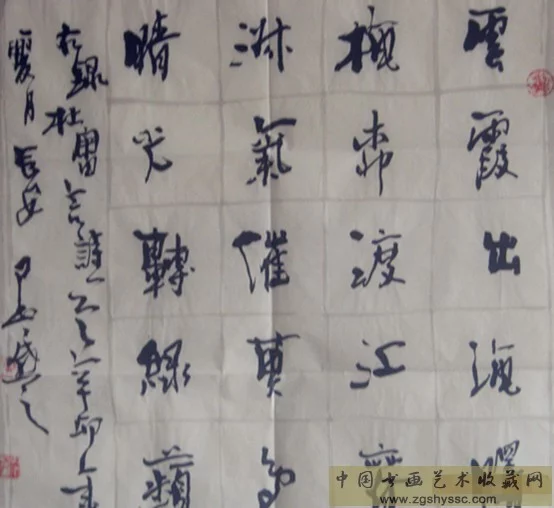 雲霞出海曙
梅柳渡江春
淑氣催黃鳥
晴光轉綠蘋
右錄杜審言詩一首辛卯
夏月長安
中国书画艺术收藏网
www.zgshyssc.com